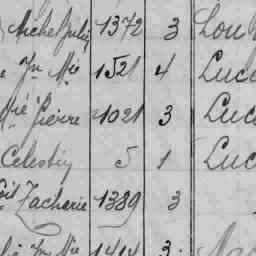 Michel Julien 1372 3 Lou
Jn Mie 1521 4 Luc
Pierre 1021 3 Luc
Celestin 5 1 Luc
Zacharie 1389 3
Jn Mie 1414 3